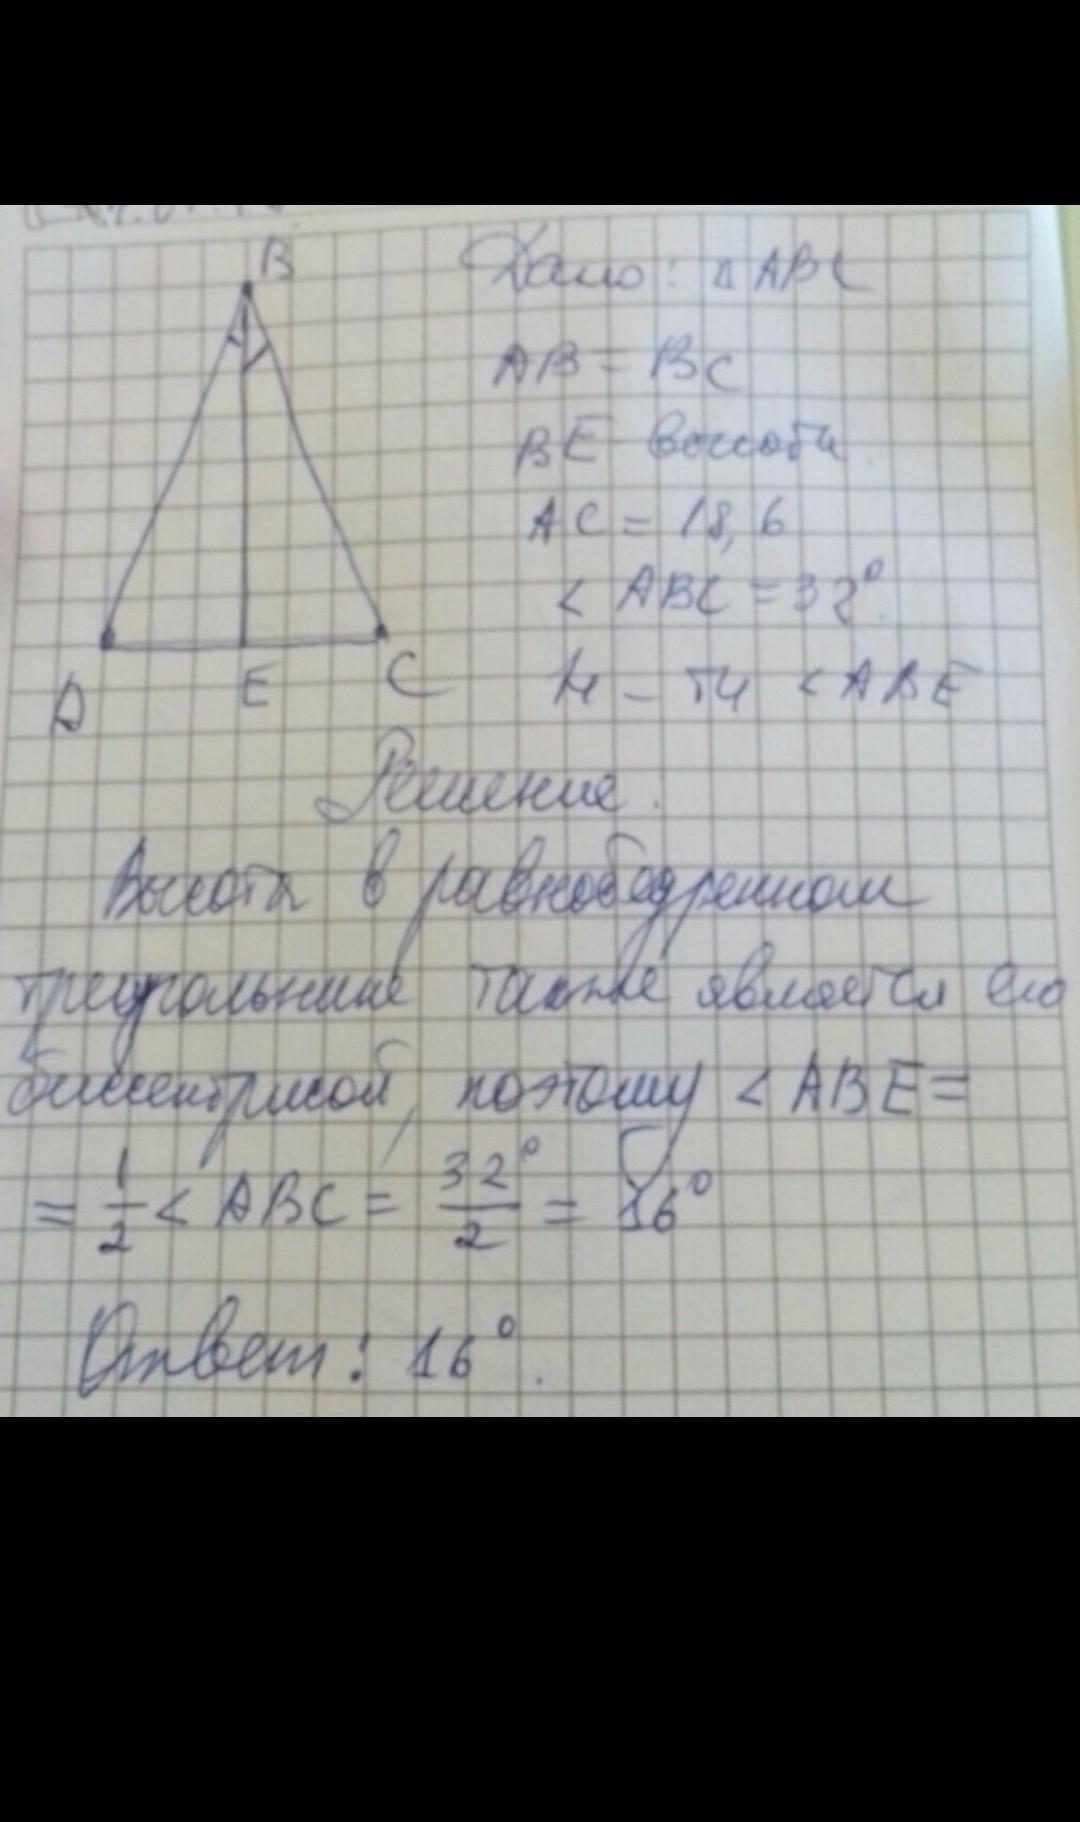 B
Дано: △ABC
AB = BC
BE высота
AC = 18,6
< ABC = 32°.
Н - ти < ABE
A E C
Решение.
Высота в равнобедренном
треугольнике также является его
биссектрисой, поэтому < ABE =
= 1/2 < ABC = 32°/2 = 16°
Ответ: 16°.